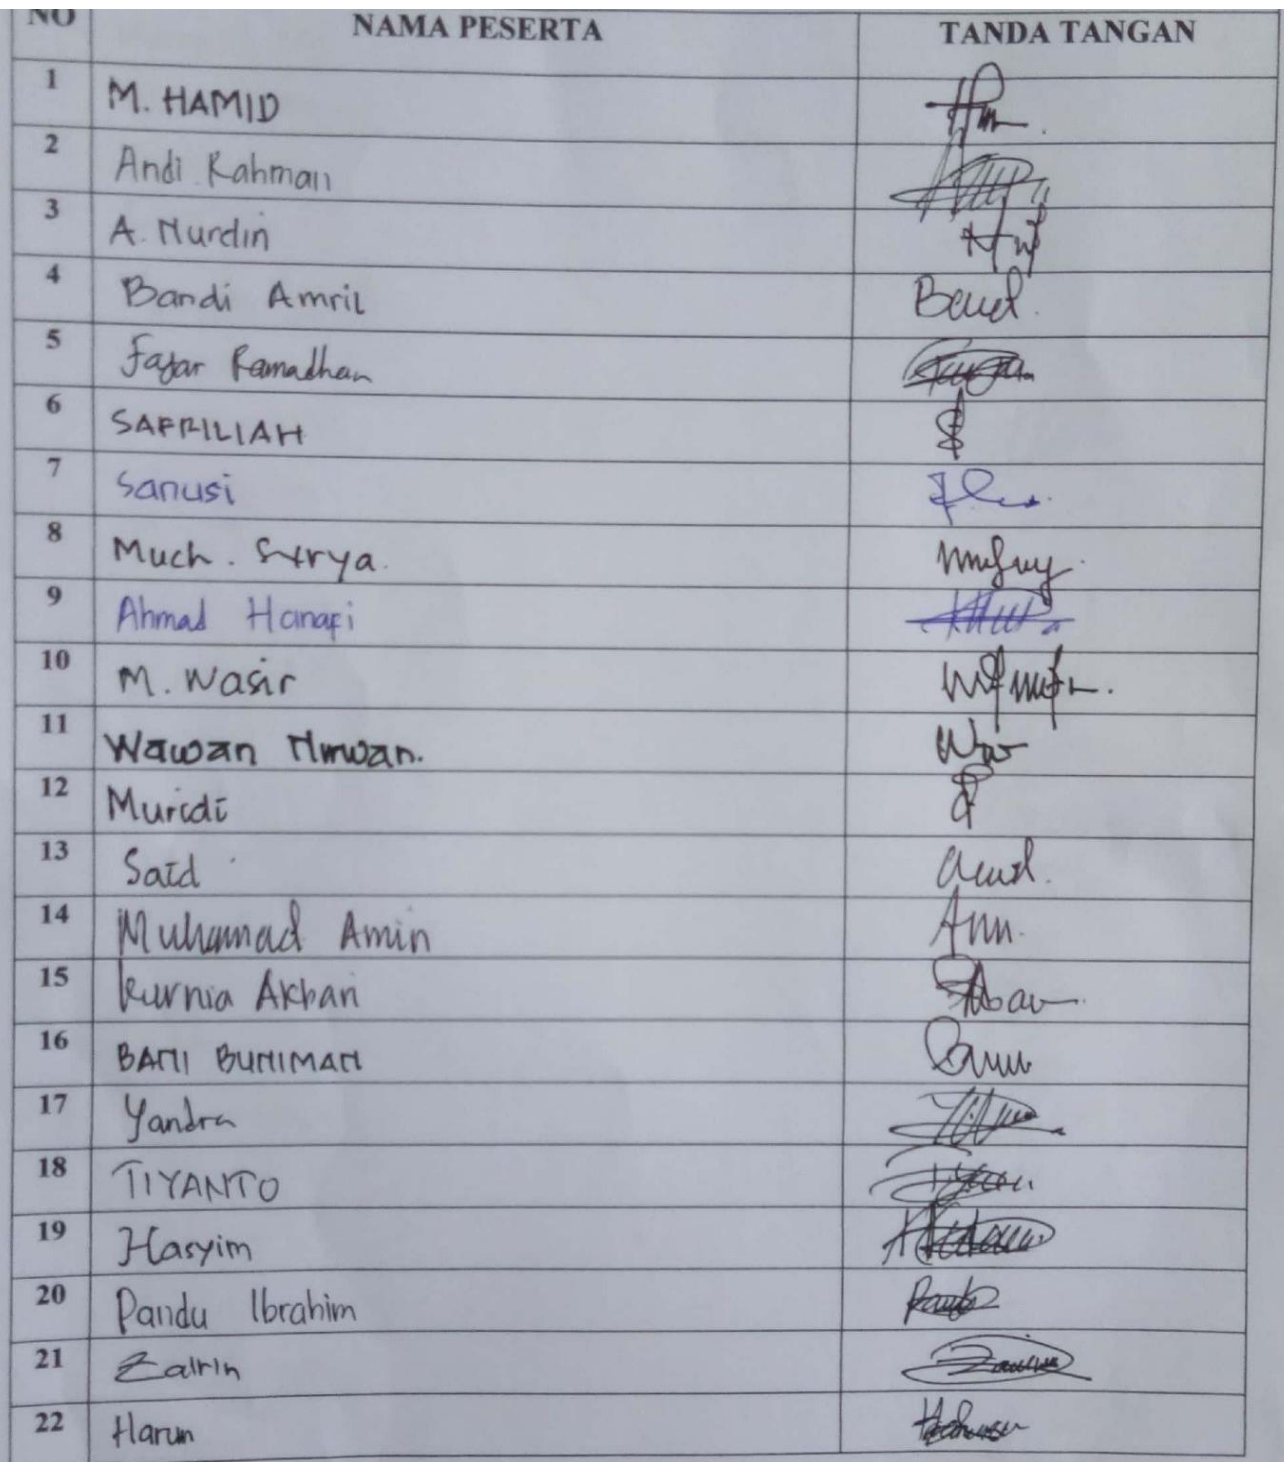 NO NAMA PESERTA TANDA TANGAN
1 M. HAMID
2 Andi Rahman
3 A. Nurdin
4 Bandi Amril
5 Fajar Ramadhan
6 SAFRILIAH
7 Sanusi
8 Much. Surya.
9 Ahmad Hanafi
10 M. Wasir
11 Wawan
12 Muridi
13 Said
14 Muhamad Amin
15 Kurnia Akbar
16 BANI BUNIMAN
17 Yandra
18 TIYANTO
19 Hasyim
20 Pandu Ibrahim
21 Zalrin
22 Harun